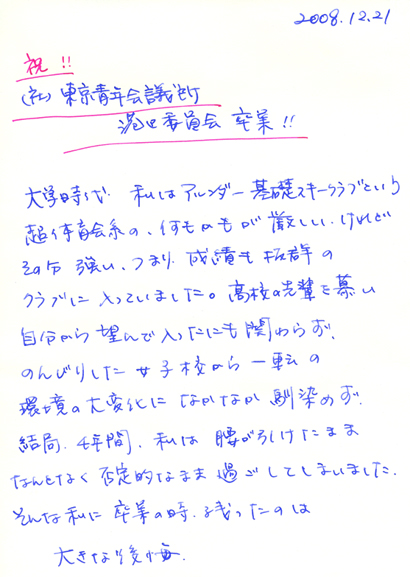 2008.12.21
祝!!
(社)東京青年会議所
港区委員会 卒業!!
大学時代 私はアルンダー基礎スキークラブという
超体育会系の、何もかもが厳しい、けれど
その分 強い、つまり 成績も抜群の
クラブに入っていました。高校の先輩を慕い
自分から望んで入ったにも関わらず、
のんびりした女子校から一転の
環境の大変化になかなか馴染めず、
結局、4年間、私は腰が引けたまま
なんとなく否定的なまま過ごしてしまいました。
そんな私に卒業の時、残ったのは
大きな後悔。